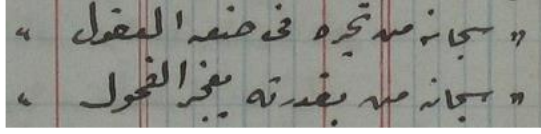 " سبحانه من تحيره فى صنعه العقول "
" سبحانه من بقدرته يعجز الفحول "